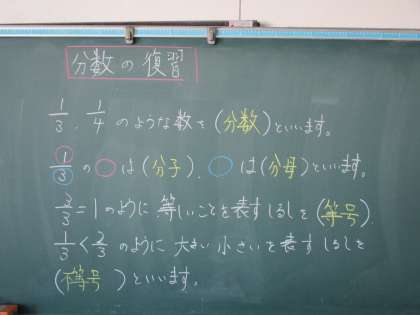 分数の復習
1/3、1/4 のような数を(分数)といいます。
1/3 の○は(分子)、○は(分母)といいます。
3/3=1のように 等しいことを表すしるしを(等号)
1/3<2/3 のように 大きい小さいを表すしるしを
(不等号)といいます。